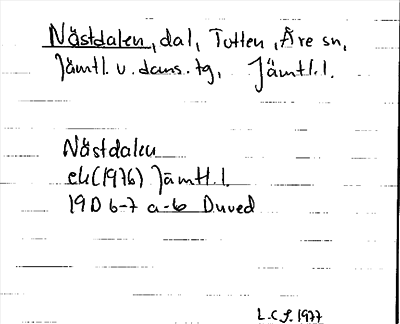 Nästdalen, dal, Totten, Åre sn,
Jämtl. v. doms. tg, Jämtl. l.
Nästdalen
ek (1976) Jämtl. l.
19 D 6-7 a-b Duved
L.C.S. 1977